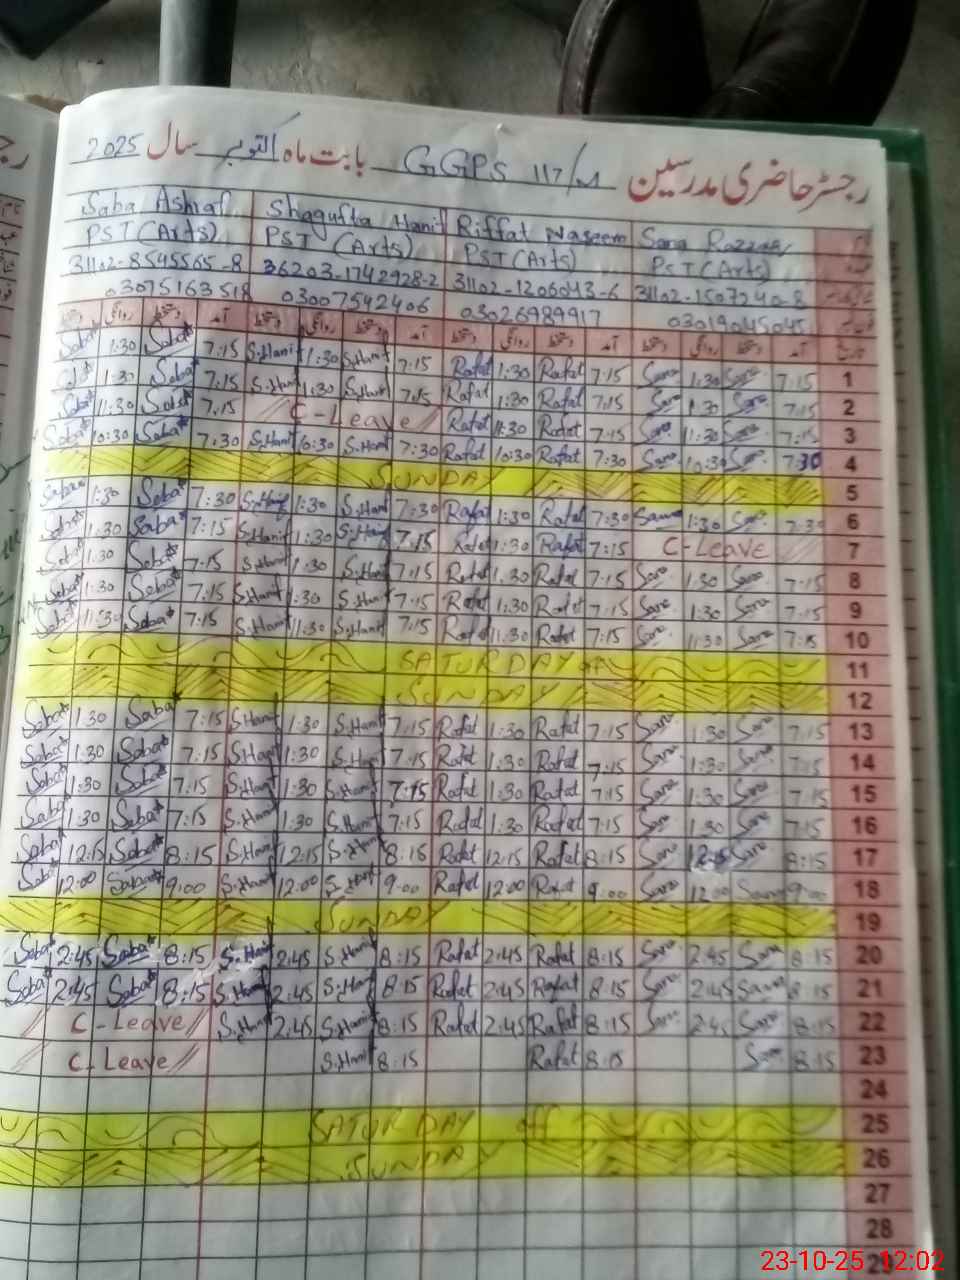 رجسٹر حاضری مدرسین GGPS 117/م بابت ماہ اکتوبر سال 2025
Saba Ashraf Shagufta Hanif Riffat Naseem Sana Razzaq
PST (Arts) PST (Arts) PST (Arts) PST (Arts)
31102-8545565-8 36203-1742928-2 31102-1206043-6 31102-1507240-8
03075163518 03007542406 03026989917 03019045045
دستخط روانگی دستخط آمد دستخط روانگی دستخط آمد دستخط روانگی دستخط آمد دستخط روانگی دستخط آمد تاریخ
Saba 1:30 Saba 7:15 S.Hanif 1:30 S.Hanif 7:15 Rafat 1:30 Rafat 7:15 Sana 1:30 Sana 7:15 1
Saba 1:30 Saba 7:15 S.Hanif 1:30 S.Hanif 7:15 Rafat 1:30 Rafat 7:15 Sana 1:30 Sana 7:15 2
Saba 11:30 Saba 7:15 C-Leave Rafat 11:30 Rafat 7:15 Sana 11:30 Sana 7:15 3
Saba 10:30 Saba 7:30 S.Hanif 10:30 S.Hanif 7:30 Rafat 10:30 Rafat 7:30 Sana 10:30 Sana 7:30 4
SUNDAY 5
Saba 1:30 Saba 7:30 S.Hanif 1:30 S.Hanif 7:30 Rafat 1:30 Rafat 7:30 Sana 1:30 Sana 7:30 6
Saba 1:30 Saba 7:15 S.Hanif 1:30 S.Hanif 7:15 Rafat 1:30 Rafat 7:15 C-Leave 7
Saba 1:30 Saba 7:15 S.Hanif 1:30 S.Hanif 7:15 Rafat 1:30 Rafat 7:15 Sana 1:30 Sana 7:15 8
Saba 1:30 Saba 7:15 S.Hanif 1:30 S.Hanif 7:15 Rafat 1:30 Rafat 7:15 Sana 1:30 Sana 7:15 9
Saba 11:30 Saba 7:15 S.Hanif 11:30 S.Hanif 7:15 Rafat 11:30 Rafat 7:15 Sana 11:30 Sana 7:15 10
SATURDAY off 11
SUNDAY 12
Saba 1:30 Saba 7:15 S.Hanif 1:30 S.Hanif 7:15 Rafat 1:30 Rafat 7:15 Sana 1:30 Sana 7:15 13
Saba 1:30 Saba 7:15 S.Hanif 1:30 S.Hanif 7:15 Rafat 1:30 Rafat 7:15 Sana 1:30 Sana 7:15 14
Saba 1:30 Saba 7:15 S.Hanif 1:30 S.Hanif 7:15 Rafat 1:30 Rafat 7:15 Sana 1:30 Sana 7:15 15
Saba 1:30 Saba 7:15 S.Hanif 1:30 S.Hanif 7:15 Rafat 1:30 Rafat 7:15 Sana 1:30 Sana 7:15 16
Saba 12:15 Saba 8:15 S.Hanif 12:15 S.Hanif 8:15 Rafat 12:15 Rafat 8:15 Sana 12:15 Sana 8:15 17
Saba 12:00 Saba 9:00 S.Hanif 12:00 S.Hanif 9:00 Rafat 12:00 Rafat 9:00 Sana 12:00 Sana 9:00 18
SUNDAY 19
Saba 2:45 Saba 8:15 S.Hanif 2:45 S.Hanif 8:15 Rafat 2:45 Rafat 8:15 Sana 2:45 Sana 8:15 20
Saba 2:45 Saba 8:15 S.Hanif 2:45 S.Hanif 8:15 Rafat 2:45 Rafat 8:15 Sana 2:45 Sana 8:15 21
C-Leave S.Hanif 2:45 S.Hanif 8:15 Rafat 2:45 Rafat 8:15 Sana 2:45 Sana 8:15 22
C-Leave S.Hanif 8:15 Rafat 8:15 Sana 8:15 23
24
SATURDAY off 25
SUNDAY 26
27
28
29
23-10-25 12:02